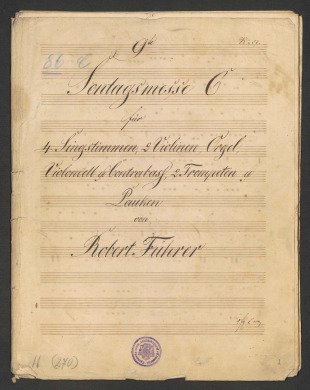 9te
86 C
Sontagsmesse C
für
4 Singstimmen, 2 Violinen, Orgel
Violoncell & Contrabass, 2 Trompeten &
Pauken
von
Robert Führer
11 (270)